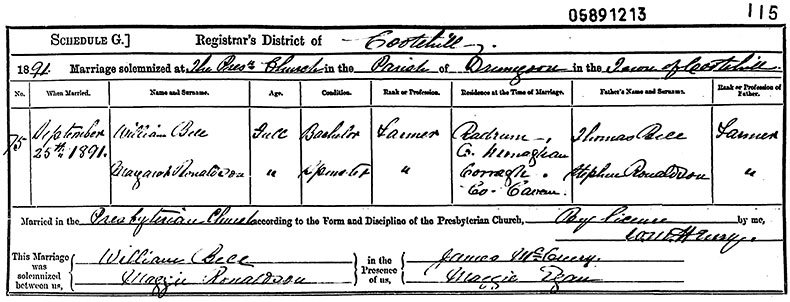 05891213 115
SCHEDULE G.] Registrar's District of Cootehill
1891. Marriage solemnized at The Presn Church in the Parish of Drumgoon in the Town of Cootehill
No. When Married. Name and Surname. Age. Condition. Rank or Profession. Residence at the Time of Marriage. Father's Name and Surname. Rank or Profession of Father.
75 September 25th 1891. William Bell Full Bachelor Farmer Co. Monaghan Thomas Bell Farmer
Margaret Ronaldson " Spinster " Corragh Co. Cavan Stephen Ronaldson "
Married in the Presbyterian Church according to the Form and Discipline of the Presbyterian Church, By licence by me,
Henry.
This Marriage was solemnized between us, William Bell in the Presence of us, James
Maggie Ronaldson Maggie